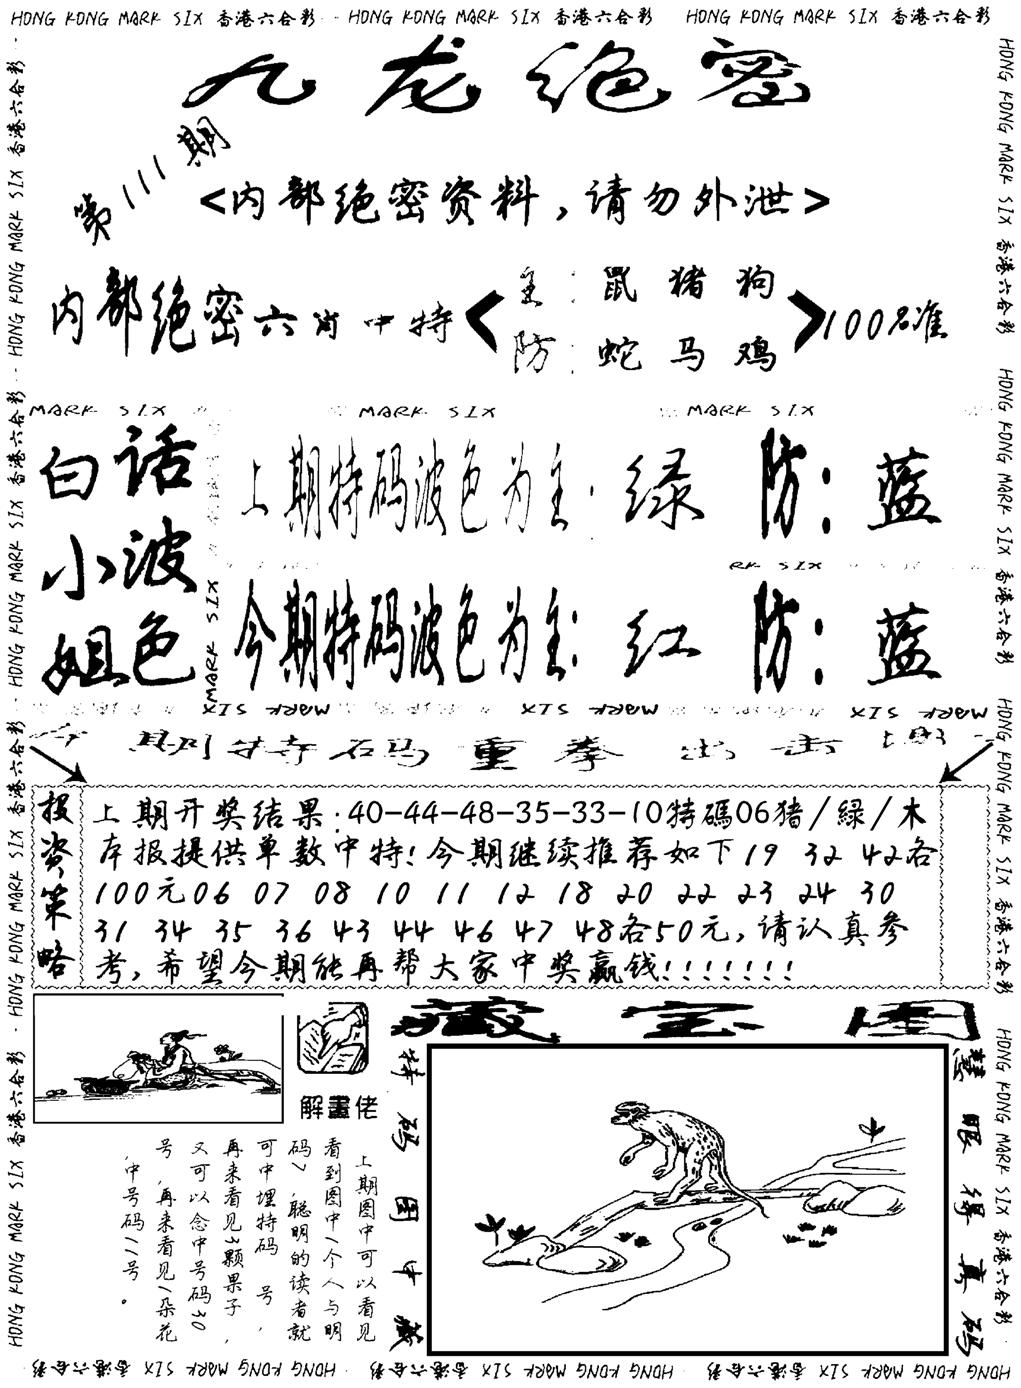 HONG KONG MARK SIX 香港六合彩 HONG KONG MARK SIX 香港六合彩 HONG KONG MARK SIX 香港六合彩
九龙绝密
第111期
<内部绝密资料,请勿外泄>
内部绝密六肖中特
主:鼠猪狗
防:蛇马鸡
100%准
MARK SIX MARK SIX MARK SIX
白话小波姐色
上期特码波色为主:绿 防:蓝
RK SIX
今期特码波色为主:红 防:蓝
MARK SIX
MARK SIX MARK SIX MARK SIX
今期特码重拳出击
投资策略
上期开奖结果:40-44-48-35-33-10特碼06猪/緑/木
本报提供单数中特!今期继续推荐如下19 32 42各
100元06 07 08 10 11 12 18 20 22 23 24 30
31 34 35 36 43 44 46 47 48各50元,请认真参
考,希望今期能再帮大家中奖赢钱!!!!!!!
藏宝图
解畫佬
特码图中藏
慧眼得真码
上期图中可以看见
看到图中1个人与明
码7,聪明的读者就
可中埋特码 号,
再来看见3颗果子,
又可以念中号码30
号,再来看见1朵花
,中号码11号。
HONG KONG MARK SIX 香港六合彩 HONG KONG MARK SIX 香港六合彩 HONG KONG MARK SIX 香港六合彩